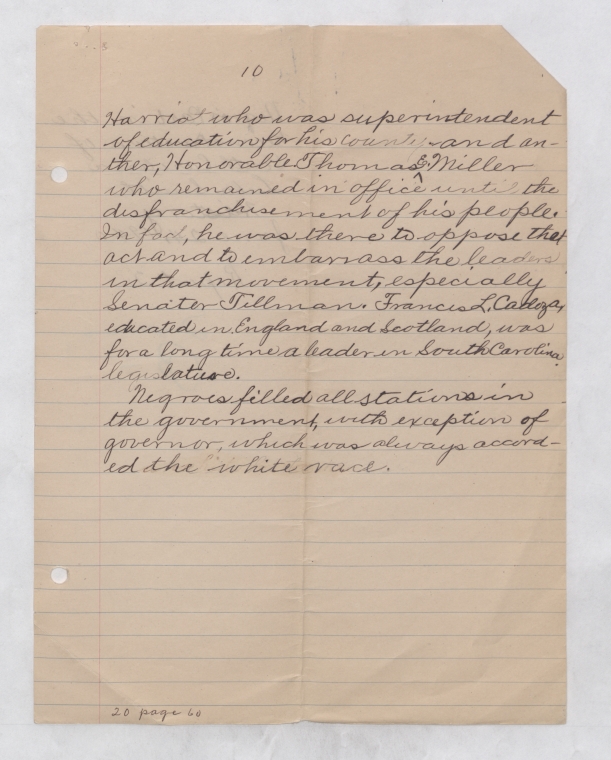 10
Harris who was superintendent
of education for his county and an-
ther, Honorable Thomas E. Miller
who remained in office until the
disfranchisement of his people.
In fac, he was there to oppose the
act and to embarrass the leaders
in that movement, especially
Senator Tillman. Francis L. Cadoza,
educated in England and Scotland, was
for a long time a leader in South Carolina
legislature.
Negroes filled all stations in
the government, with exception of
governor, which was always accord-
ed the white race.
20 page 60